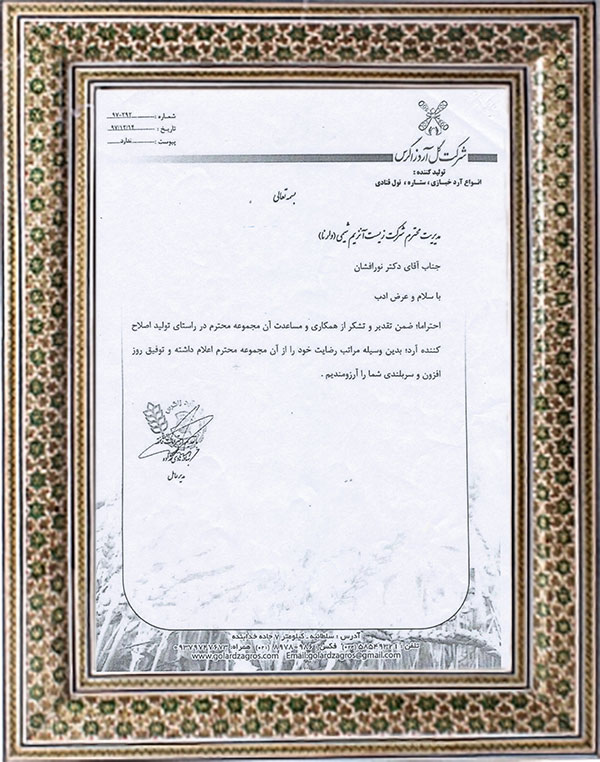 شماره : ۹۷۰۲۹۲
تاریخ : ۹۷/۱۲/۱۴
پیوست : ندارد
شرکت گل آرد زاگرس
تولید کننده :
انواع آرد خبازی ، ستاره ، نول قنادی
بسمه تعالی
مدیریت محترم شرکت زیست آنزیم شیمی (وارنا)
جناب آقای دکتر نورافشان
با سلام و عرض ادب
احتراما؛ ضمن تقدیر و تشکر از همکاری و مساعدت آن مجموعه محترم در راستای تولید اصلاح
کننده آرد؛ بدین وسیله مراتب رضایت خود را از آن مجموعه محترم اعلام داشته و توفیق روز
افزون و سربلندی شما را آرزومندیم .
مدیرعامل
آدرس : سلطانیه . کیلومتر ۷ جاده خدابنده
تلفن : فکس : ۸۹۷۸۰۹۸۶ (۰۲۱) همراه : ۰۹۳۷۹۷۶۷۶۷۳
www.golardzagros.com Email:golardzagros@gmail.com